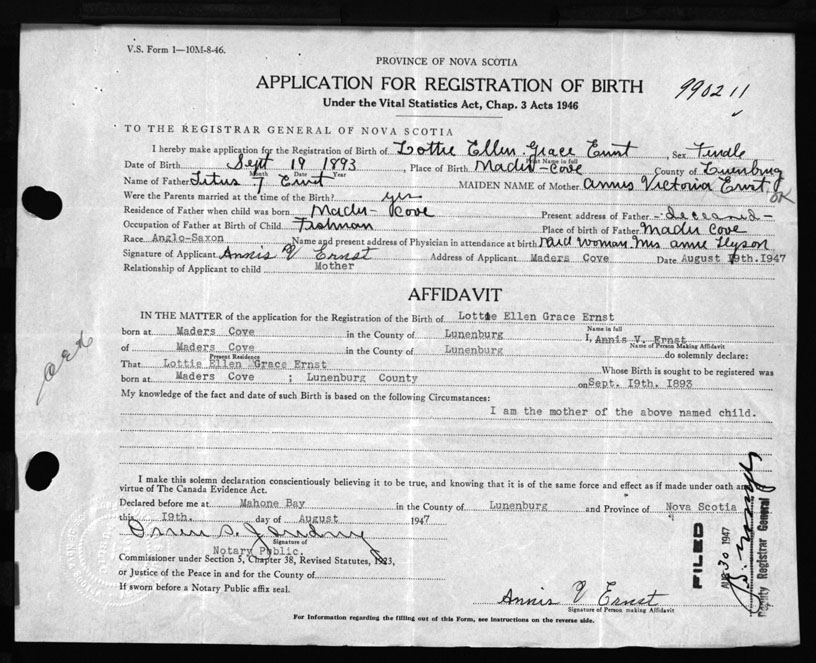 V.S. Form 1—10M-8-46.
PROVINCE OF NOVA SCOTIA
APPLICATION FOR REGISTRATION OF BIRTH
990211
Under the Vital Statistics Act, Chap. 3 Acts 1946
TO THE REGISTRAR GENERAL OF NOVA SCOTIA
I hereby make application for the Registration of Birth of Lottie Ellen Grace Ernst, Sex Female
Print Name in full
Date of Birth Sept 19 1893, Place of Birth Mader-Cove County of Lunenburg
Month Date Year
Name of Father Titus 7 Ernst MAIDEN NAME of Mother Annis Victoria Ernst. OK
Were the Parents married at the time of the Birth? yes
Residence of Father when child was born Mader-Cove Present address of Father -Deceased-
Occupation of Father at Birth of Child Fishman Place of birth of Father Mader Cove
Race Anglo-Saxon Name and present address of Physician in attendance at birth woman Mrs Anne Hyson
Signature of Applicant Annis V Ernst Address of Applicant Maders Cove Date August 19th.1947
Relationship of Applicant to child Mother
AFFIDAVIT
IN THE MATTER of the application for the Registration of the Birth of Lottie Ellen Grace Ernst
Name in full
born at Maders Cove in the County of Lunenburg I, Annis V. Ernst
Name of Person Making Affidavit
of Maders Cove in the County of Lunenburg do solemnly declare:
Present Residence
That Lottie Ellen Grace Ernst Whose Birth is sought to be registered was
born at Maders Cove ; Lunenburg County on Sept. I9th. I893
My knowledge of the fact and date of such Birth is based on the following Circumstances:
I am the mother of the above named child.
I make this solemn declaration conscientiously believing it to be true, and knowing that it is of the same force and effect as if made under oath and
virtue of The Canada Evidence Act.
Declared before me at Mahone Bay in the County of Lunenburg and Province of Nova Scotia
this I9th. day of August 1947
Signature of
Notary Public.
Commissioner under Section 5, Chapter 38, Revised Statutes, 1923,
or Justice of the Peace in and for the County of
If sworn before a Notary Public affix seal.
FILED
AUG 30 1947
Deputy Registrar General
Annis V Ernst
Signature of Person making Affidavit
For Information regarding the filling out of this Form, see Instructions on the reverse side.